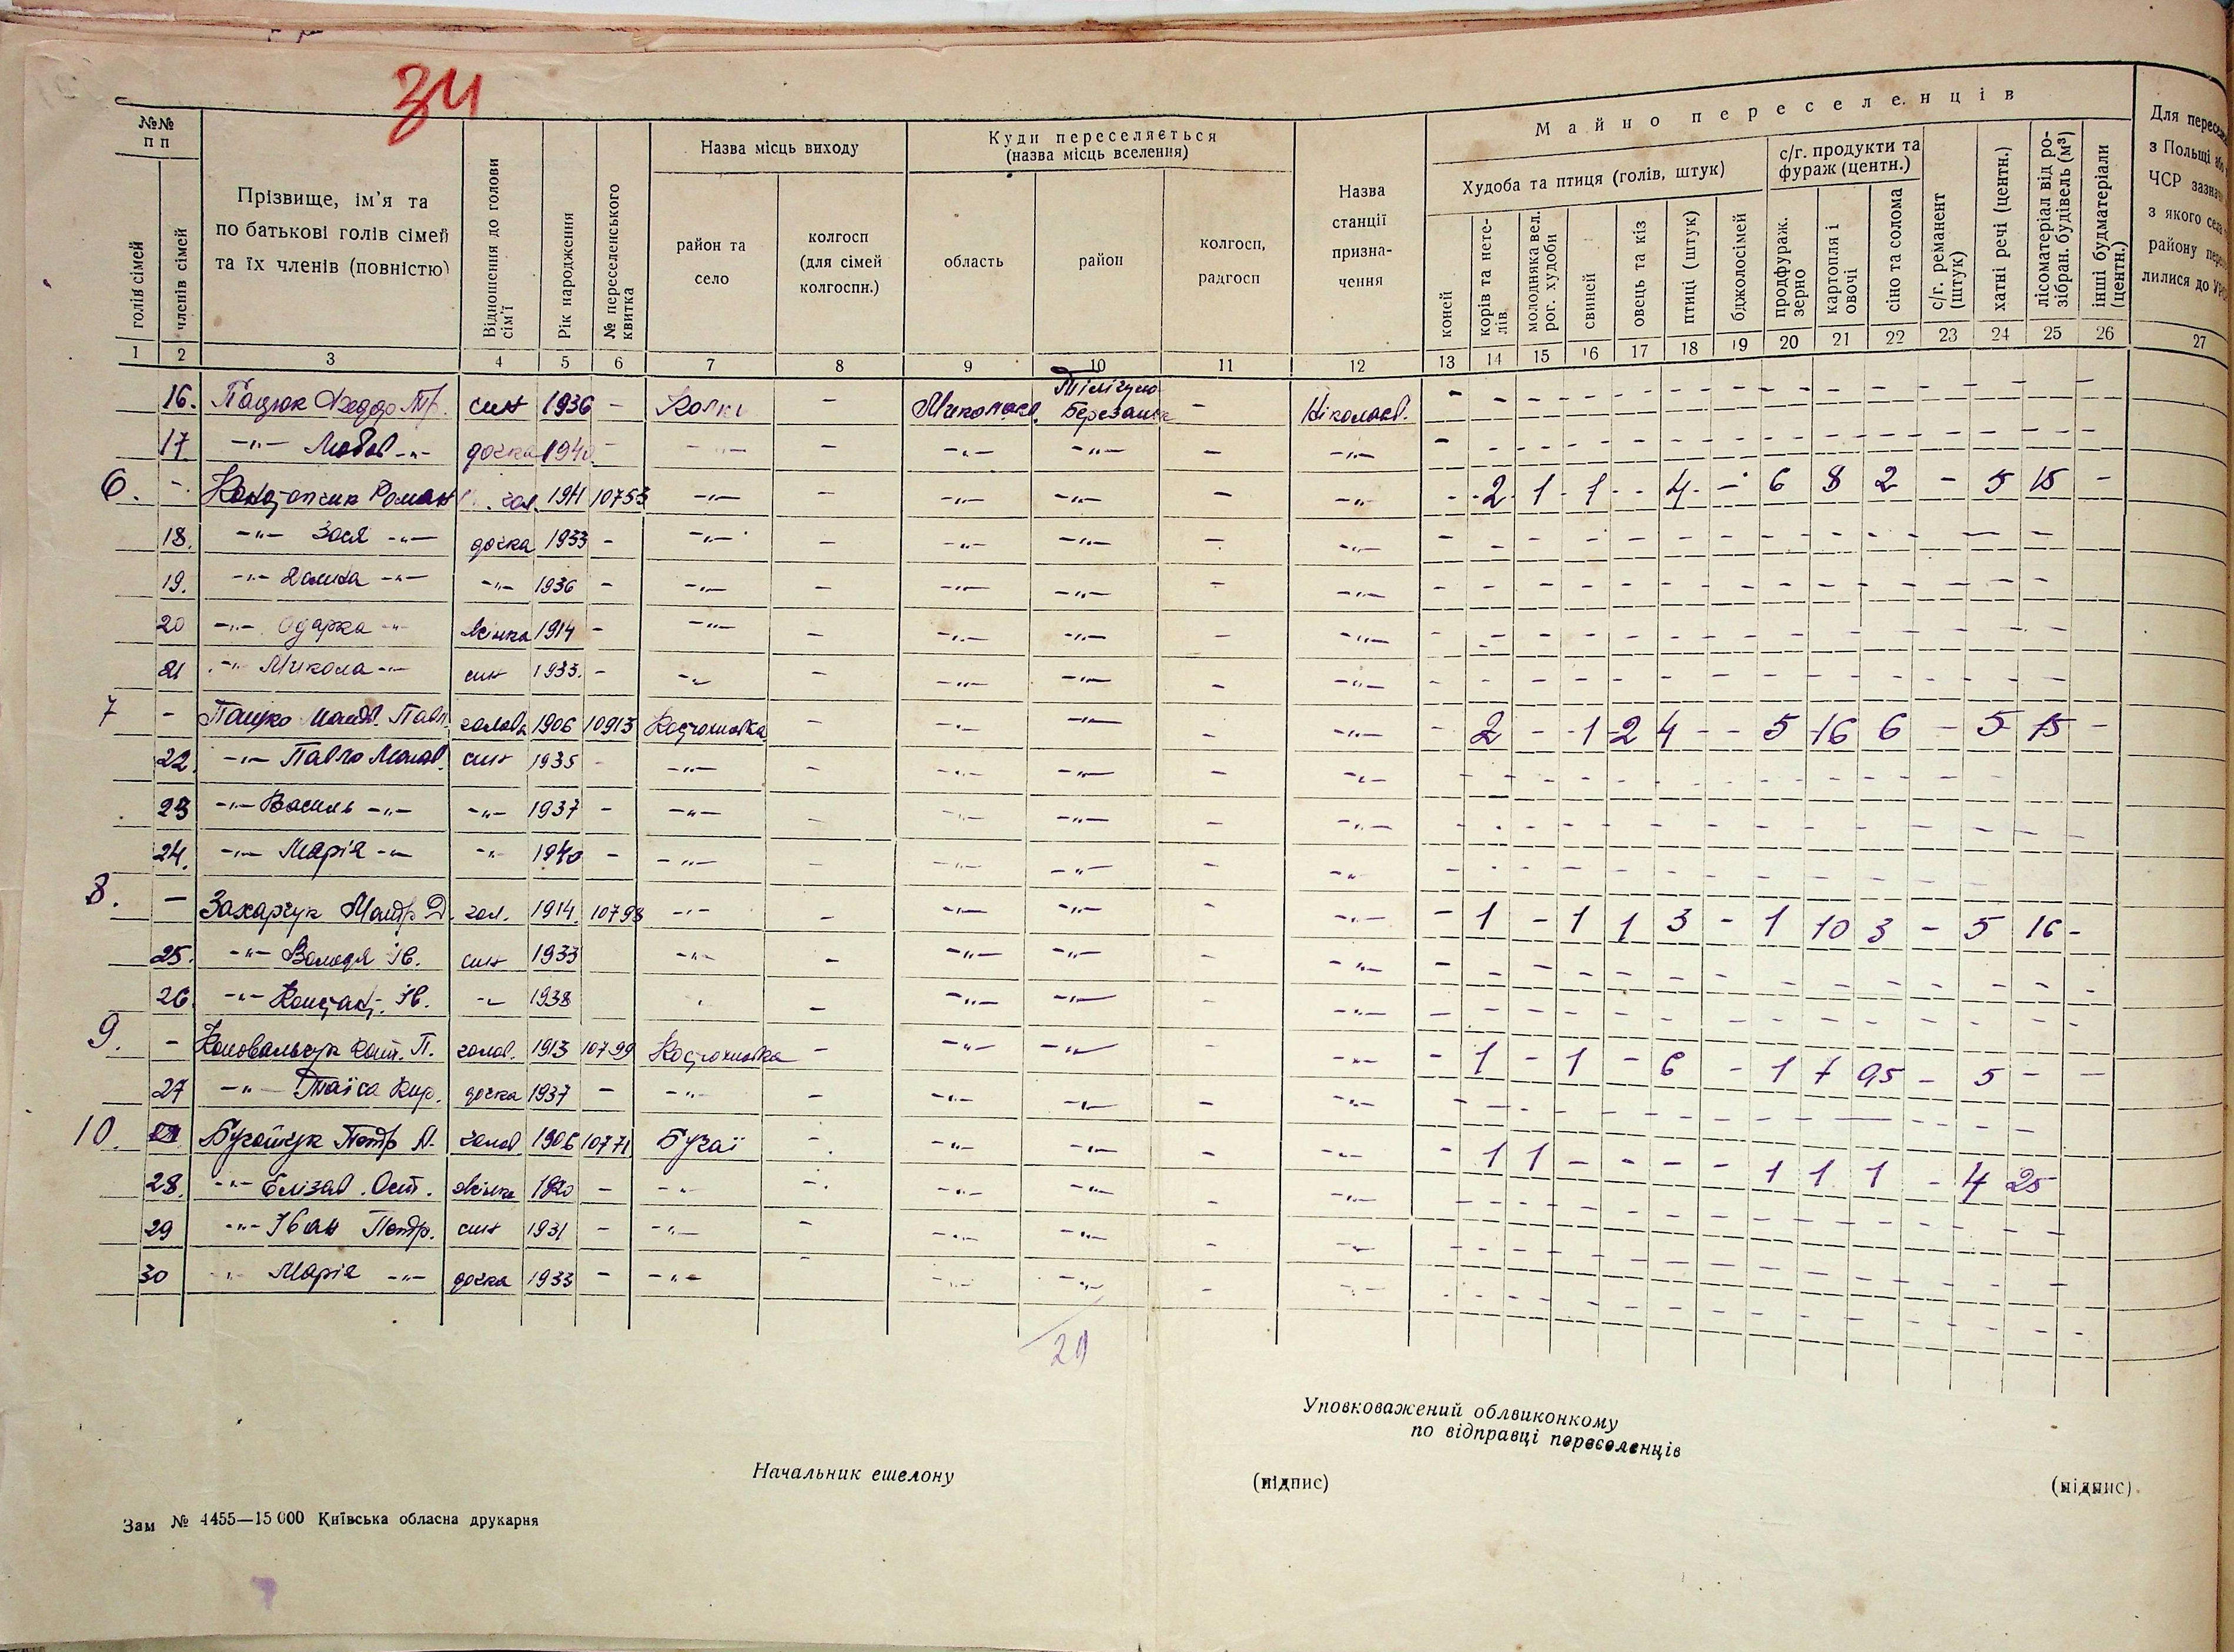 34
№№ п п
Прізвище, ім'я та по батькові голів сімей та їх членів (повністю)
Відношення до голови сім'ї
Рік народження
№ переселенського квитка
Назва місць виходу
Куди переселяється (назва місць вселення)
Назва станції призначення
Майно переселенців
Для
з Польщі або
ЧСР
з якого села
району
лилися до
голів сімей
членів сімей
район та село
колгосп (для сімей колгоспн.)
область
район
колгосп, радгосп
Худоба та птиця (голів, штук)
с/г. продукти та фураж (центн.)
с/г. реманент (штук)
хатні речі (центн.)
лісоматеріал від розібран. будівель (м³)
інші будматеріали (центн.)
коней
корів та нетелів.
молодняка вел. рог. худоби
свиней
овець та кіз
птиці (штук)
бджолосімей
продфураж. зерно
картопля і овочі
сіно та солома
1 2 3 4 5 6 7 8 9 10 11 12 13 14 15 16 17 18 19 20 21 22 23 24 25 26 27
16. Пацюк Федор Тр. син 1936 - Колки - Миколаєв. Тілігуло Березанськ - Ніколаєв. - - - - - - - - - - - - - -
17 -"- Любов -"- дочка 1940 - -"- - -"- -"- - -"- - - - - - - - - - - - - - -
6. - Роман гол. 1911 10753 -"- - -"- -"- - -"- - 2 1 1 - 4 - 6 8 2 - 5 15 -
18. -"- Зося -"- дочка 1933 - -"- - -"- -"- - -"- - - - - - - - - - - - - -
19. -"- Галина -"- -"- 1936 - -"- -"- -"- - -"- - - - - - - - - - - - - -
20 -"- Одарка -"- жінка 1914 - -"- - -"- -"- - -"- - - - - - - - - - - - - -
21 -"- Микола -"- син 1933. - -"- - -"- -"- - -"- - - - - - - - - - - - - -
7 - Пацко Матв. Павл. голова 1906 10913 Костюхнівка - -"- -"- - -"- - 2 - 1 2 4 - 5 16 6 - 5 15 -
22. -"- Павло Матв. син 1935 - -"- - -"- -"- - -"- - - - - - - - - - - - -
23 -"- Василь -"- -"- 1937 - -"- - -"- -"- - -"- - - - - - - - - - - - - -
24. -"- Марія -"- -"- 1940 - -"- - -"- -"- - -"- - - - - - - - - - - - -
8. - Захарчук Мотр. Д. гол. 1914. 10798 -"- - -"- -"- - -"- - 1 - 1 1 3 - 1 10 3 - 5 16 -
25. -"- Володя Ів. син 1933 -"- - -"- -"- - -"- - - - - - - - - - - - - -
26. -"- Ів. -"- 1938 - -"- -"- - -"- - - - - - - - - - - - - -
9. - Коновальчук Кат. П. голов. 1913 10799 Костюхнівка - -"- -"- - -"- - 1 - 1 - 6 - 1 7 0,5 - 5 - -
27 -"- Таїса Кир. дочка 1937 - -"- - -"- -"- - -"- - - - - - - - - - - - -
10. Бугайчук Петр А. голов 1906 10771 Бугаї - -"- -"- - -"- - 1 1 - - - - 1 1 1 - 4 25
28. -"- Елізав. Ост. жінка 1920 - -"- - -"- -"- - -"- - - - - - - - - - - - -
29 -"- Іван Петр. син 1931 - -"- - -"- -"- - -"- - - - - - - - - - - - -
30 -"- Марія -"- дочка 1933 - -"- - -"- -"- - -"- - - - - - - - - - - - -
29
Уповковажений облвиконкому
по відправці переселенців
Начальник ешелону
(підпис)
(підпис)
Зам № 4455—15 000 Київська обласна друкарня